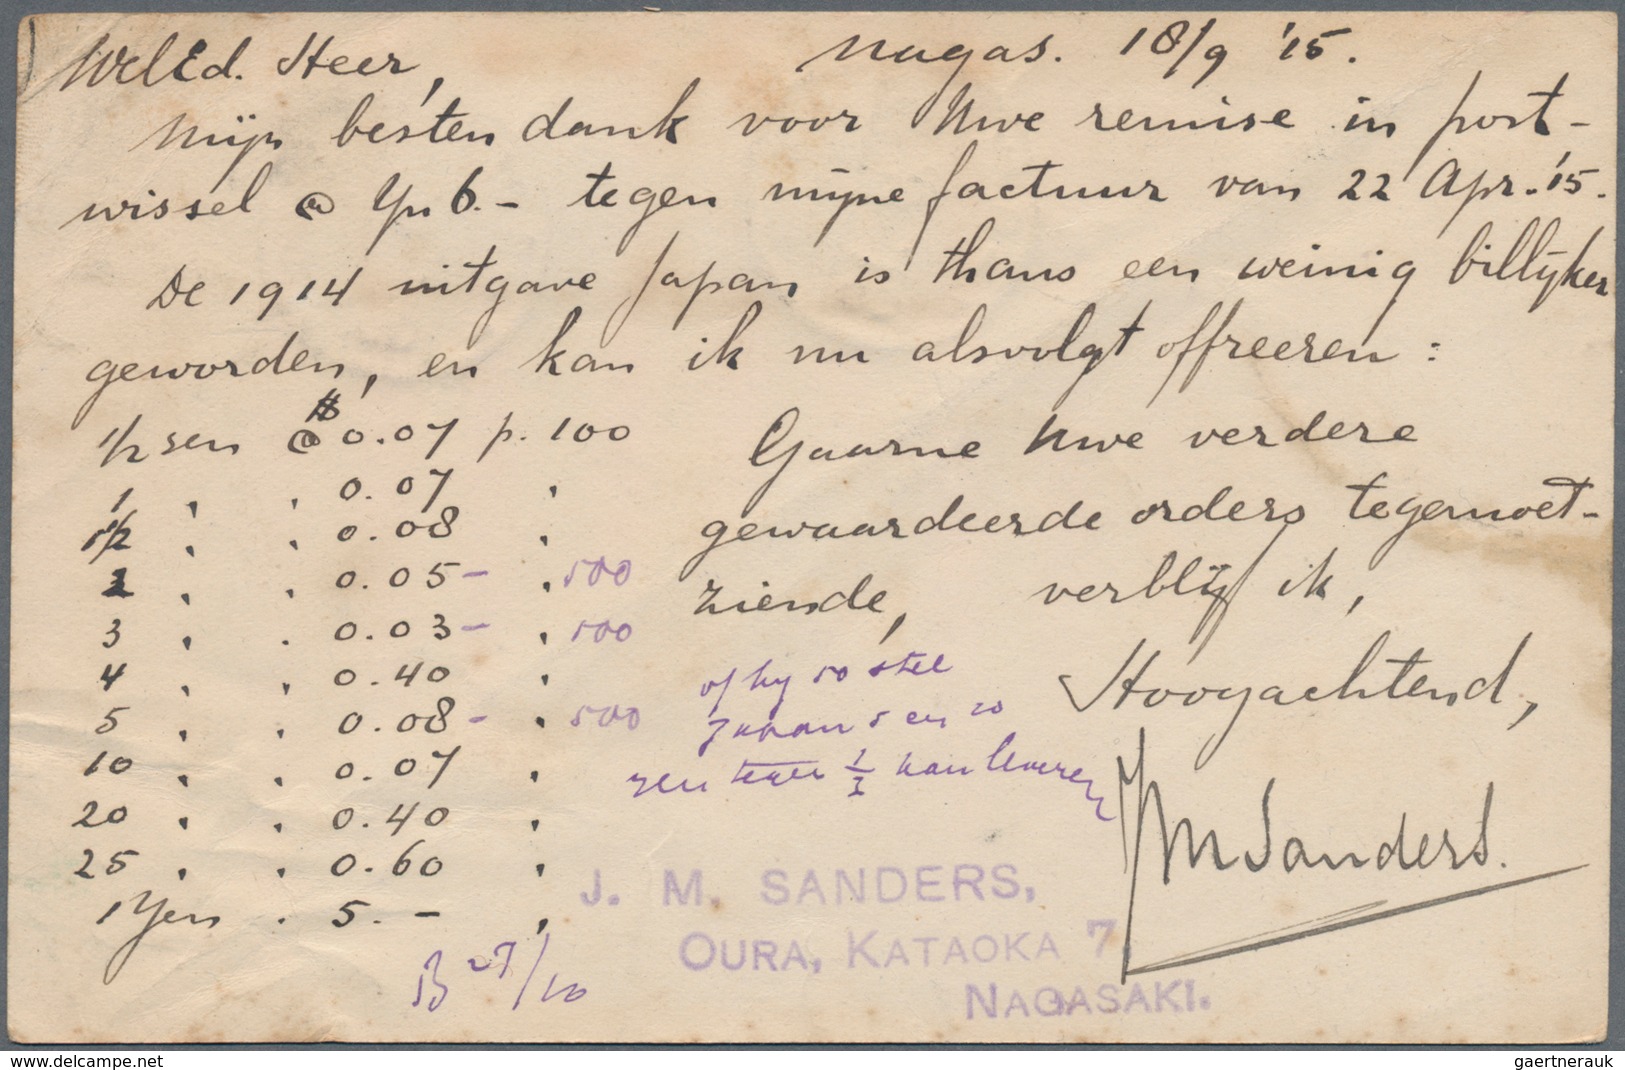 WelEd. Heer,
Nagas. 18/9 '15.
Mijn besten dank voor Uwe remise in post-
wissel @ Yn 6.- tegen mijne factuur van 22 Apr. '15.
De 1914 uitgave Japan is thans een weinig billijker
geworden, en kan ik nu alsvolgt offreeren:
1/2 sen @ $ 0.07 p. 100
1 " " 0.07 "
1 1/2 " " 0.08 "
2 " " 0.05 - " 500
3 " " 0.03 - " 500
4 " " 0.40 "
5 " " 0.08 - " 500
10 " " 0.07 "
20 " " 0.40 "
25 " " 0.60 "
1 Yen " 5.- "
Gaarne Uwe verdere
gewaardeerde orders tegemoet-
ziende, verblijf ik,
Hoogachtend,
JMSanders.
of hij 50 stel
Japan 5 en 20
zen 1/2 kan leveren
B 27/10
J. M. SANDERS,
OURA, KATAOKA 7,
NAGASAKI.
www.delcampe.net
gaertnerauk